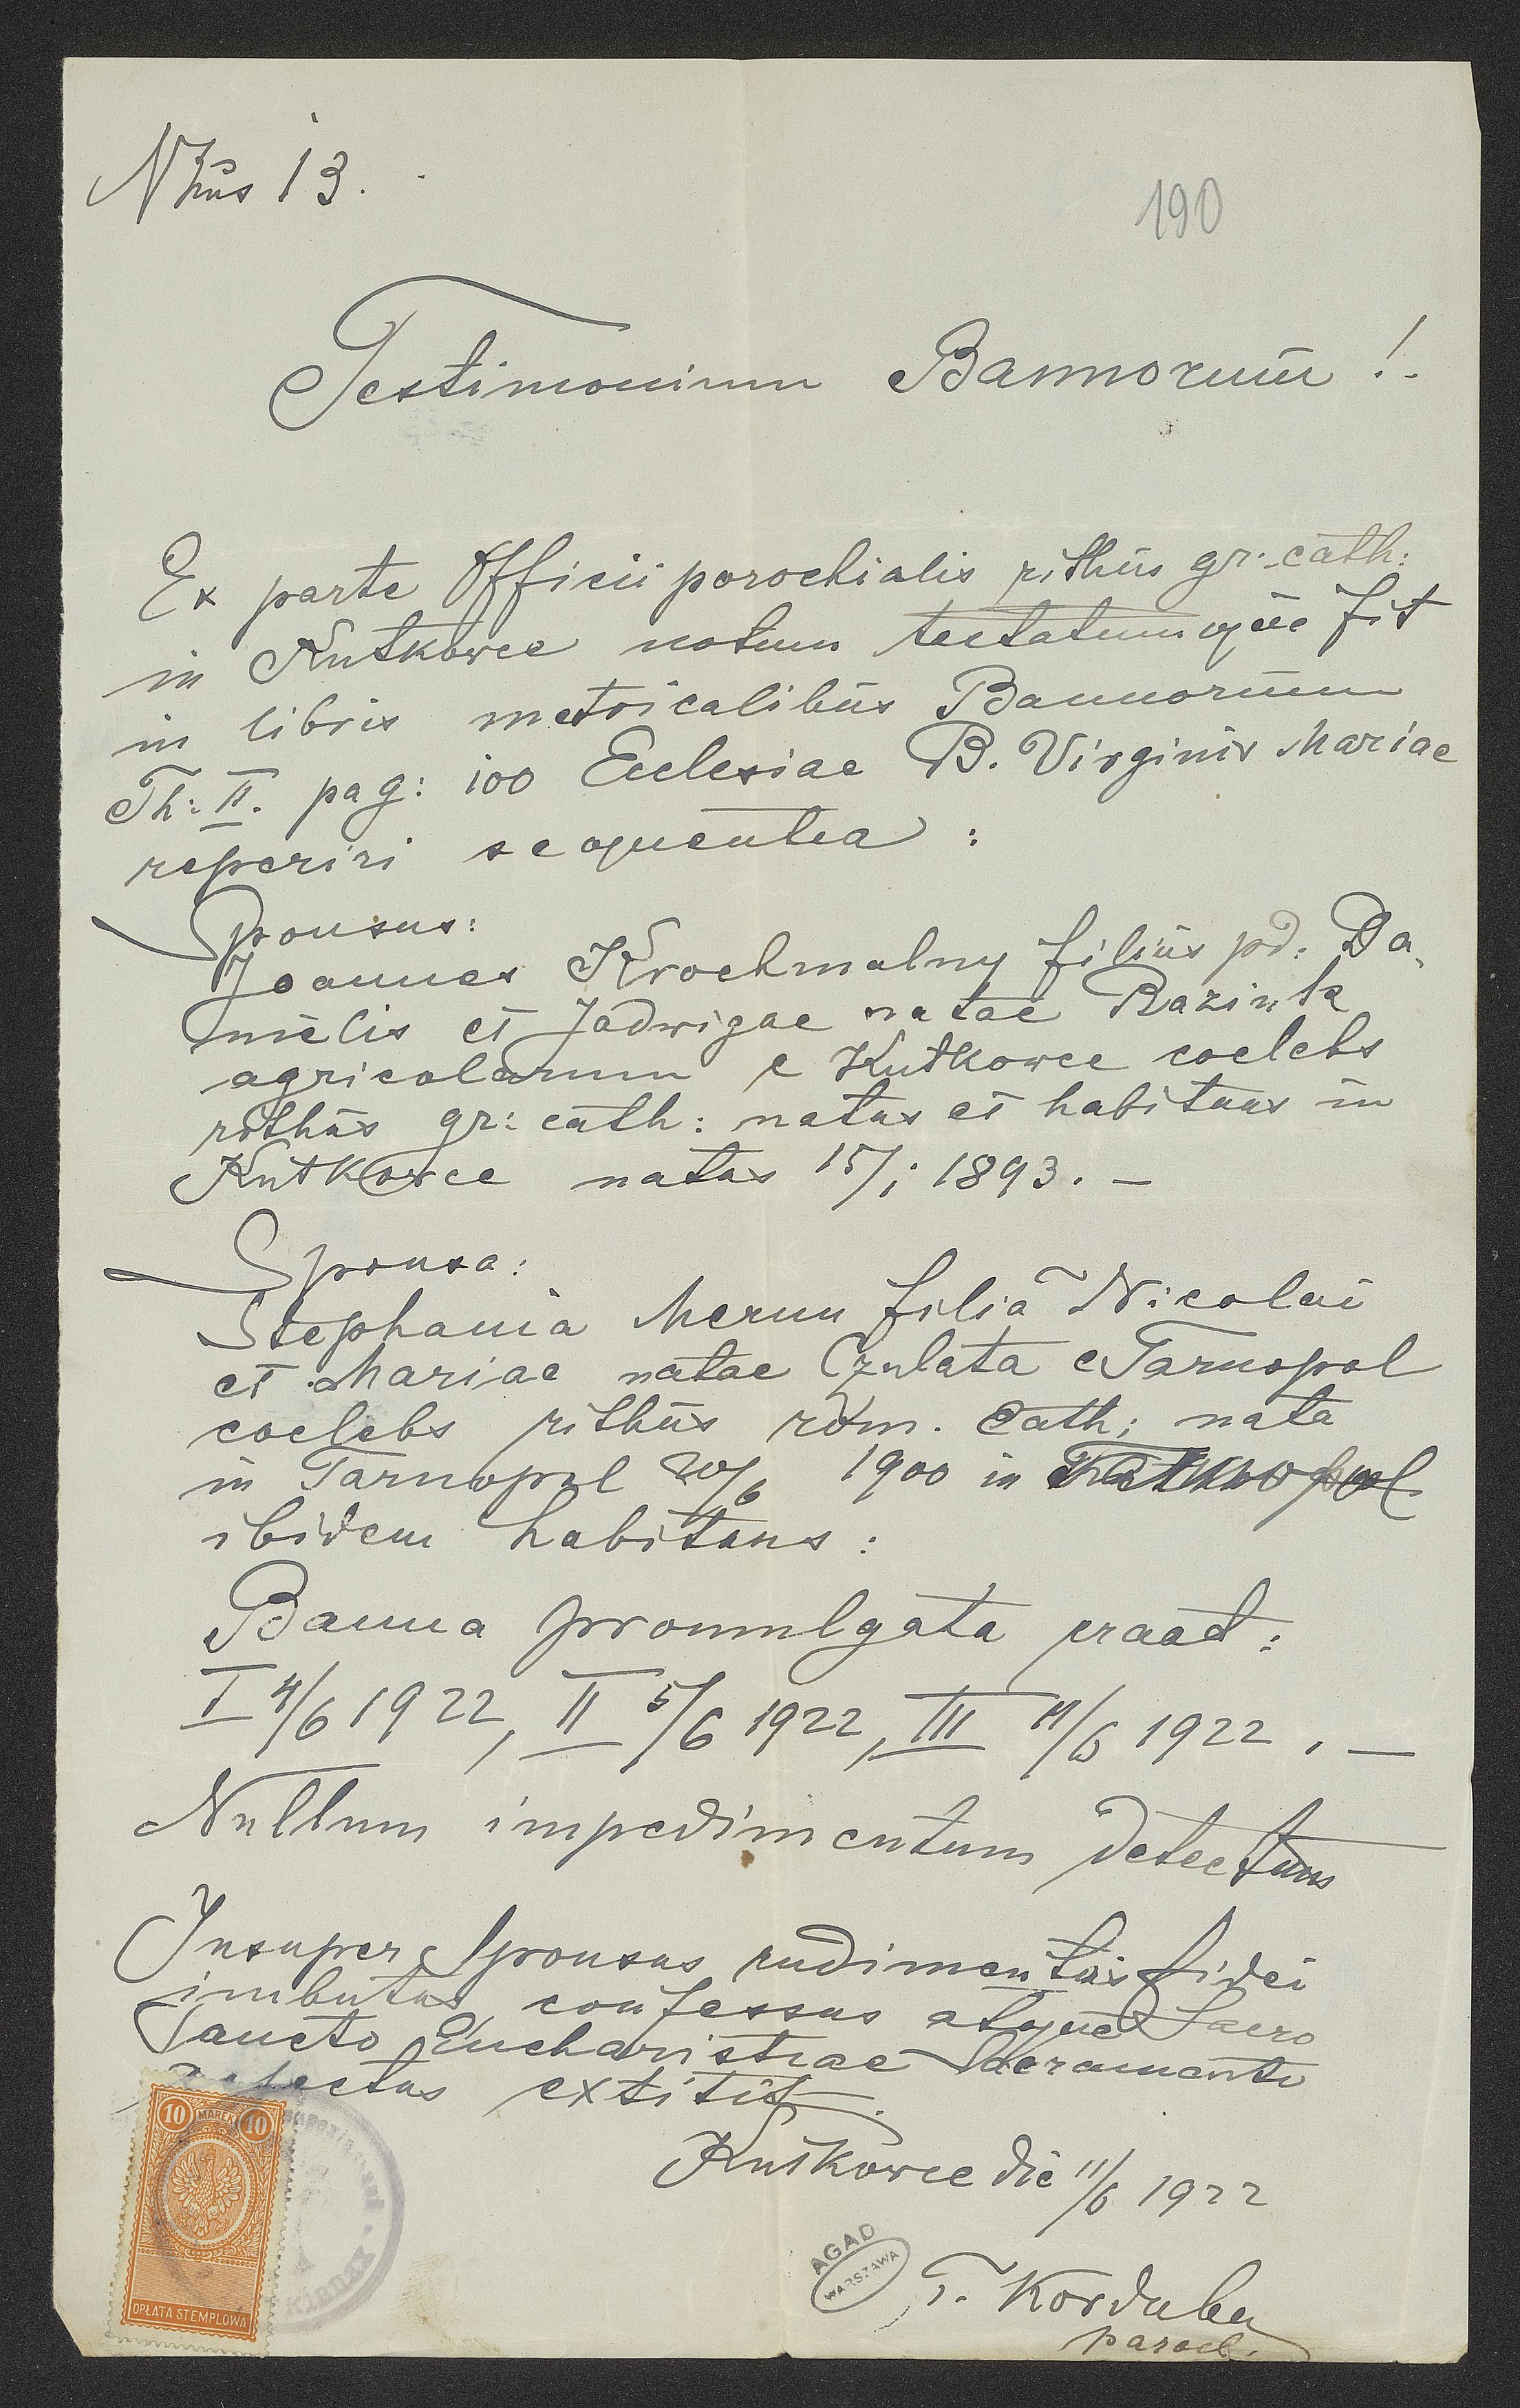 Nrus 13.
190
Testimonium Bannorum !.
Ex parte Officii porochialis rithus gr: cath:
in Kutkowce notum testatumque fit
in libris metricalibus Bannorum
Th: II. pag: 100 Ecclesiae B. Virginis Mariae
reperiri sequentea :
Sponsus:
Joannes Krochmalny filius pd. Da,
nielis et Jadwigae natae Bazinka
agricolarum e Kutkowce coelebs
rithus gr: cath: natus et habitans in
Kutkowce natus 15/1 1893. —
Sponsa:
Stephania Merun filia Nicolai
et Mariae natae Czulata e Tarnopol
coelebs rithus rom. Cath; nata
in Tarnopol 20/6 1900 in
ibidem habitans :
Banna promulgata
I 4/6 1922, II 5/6 1922, III 11/6 1922 . —
Nullum impedimentum detectum
Insuper Sponsus rudimentis fidei
imbutus, confessus atque Sacro
Sancto Eucharistiae Sacramento
refectus extitit.
Kutkowce die 11/6 1922
T. Korduba
paroch.
10 MAREK 10
OPŁATA STEMPLOWA
AGAD
WARSZAWA